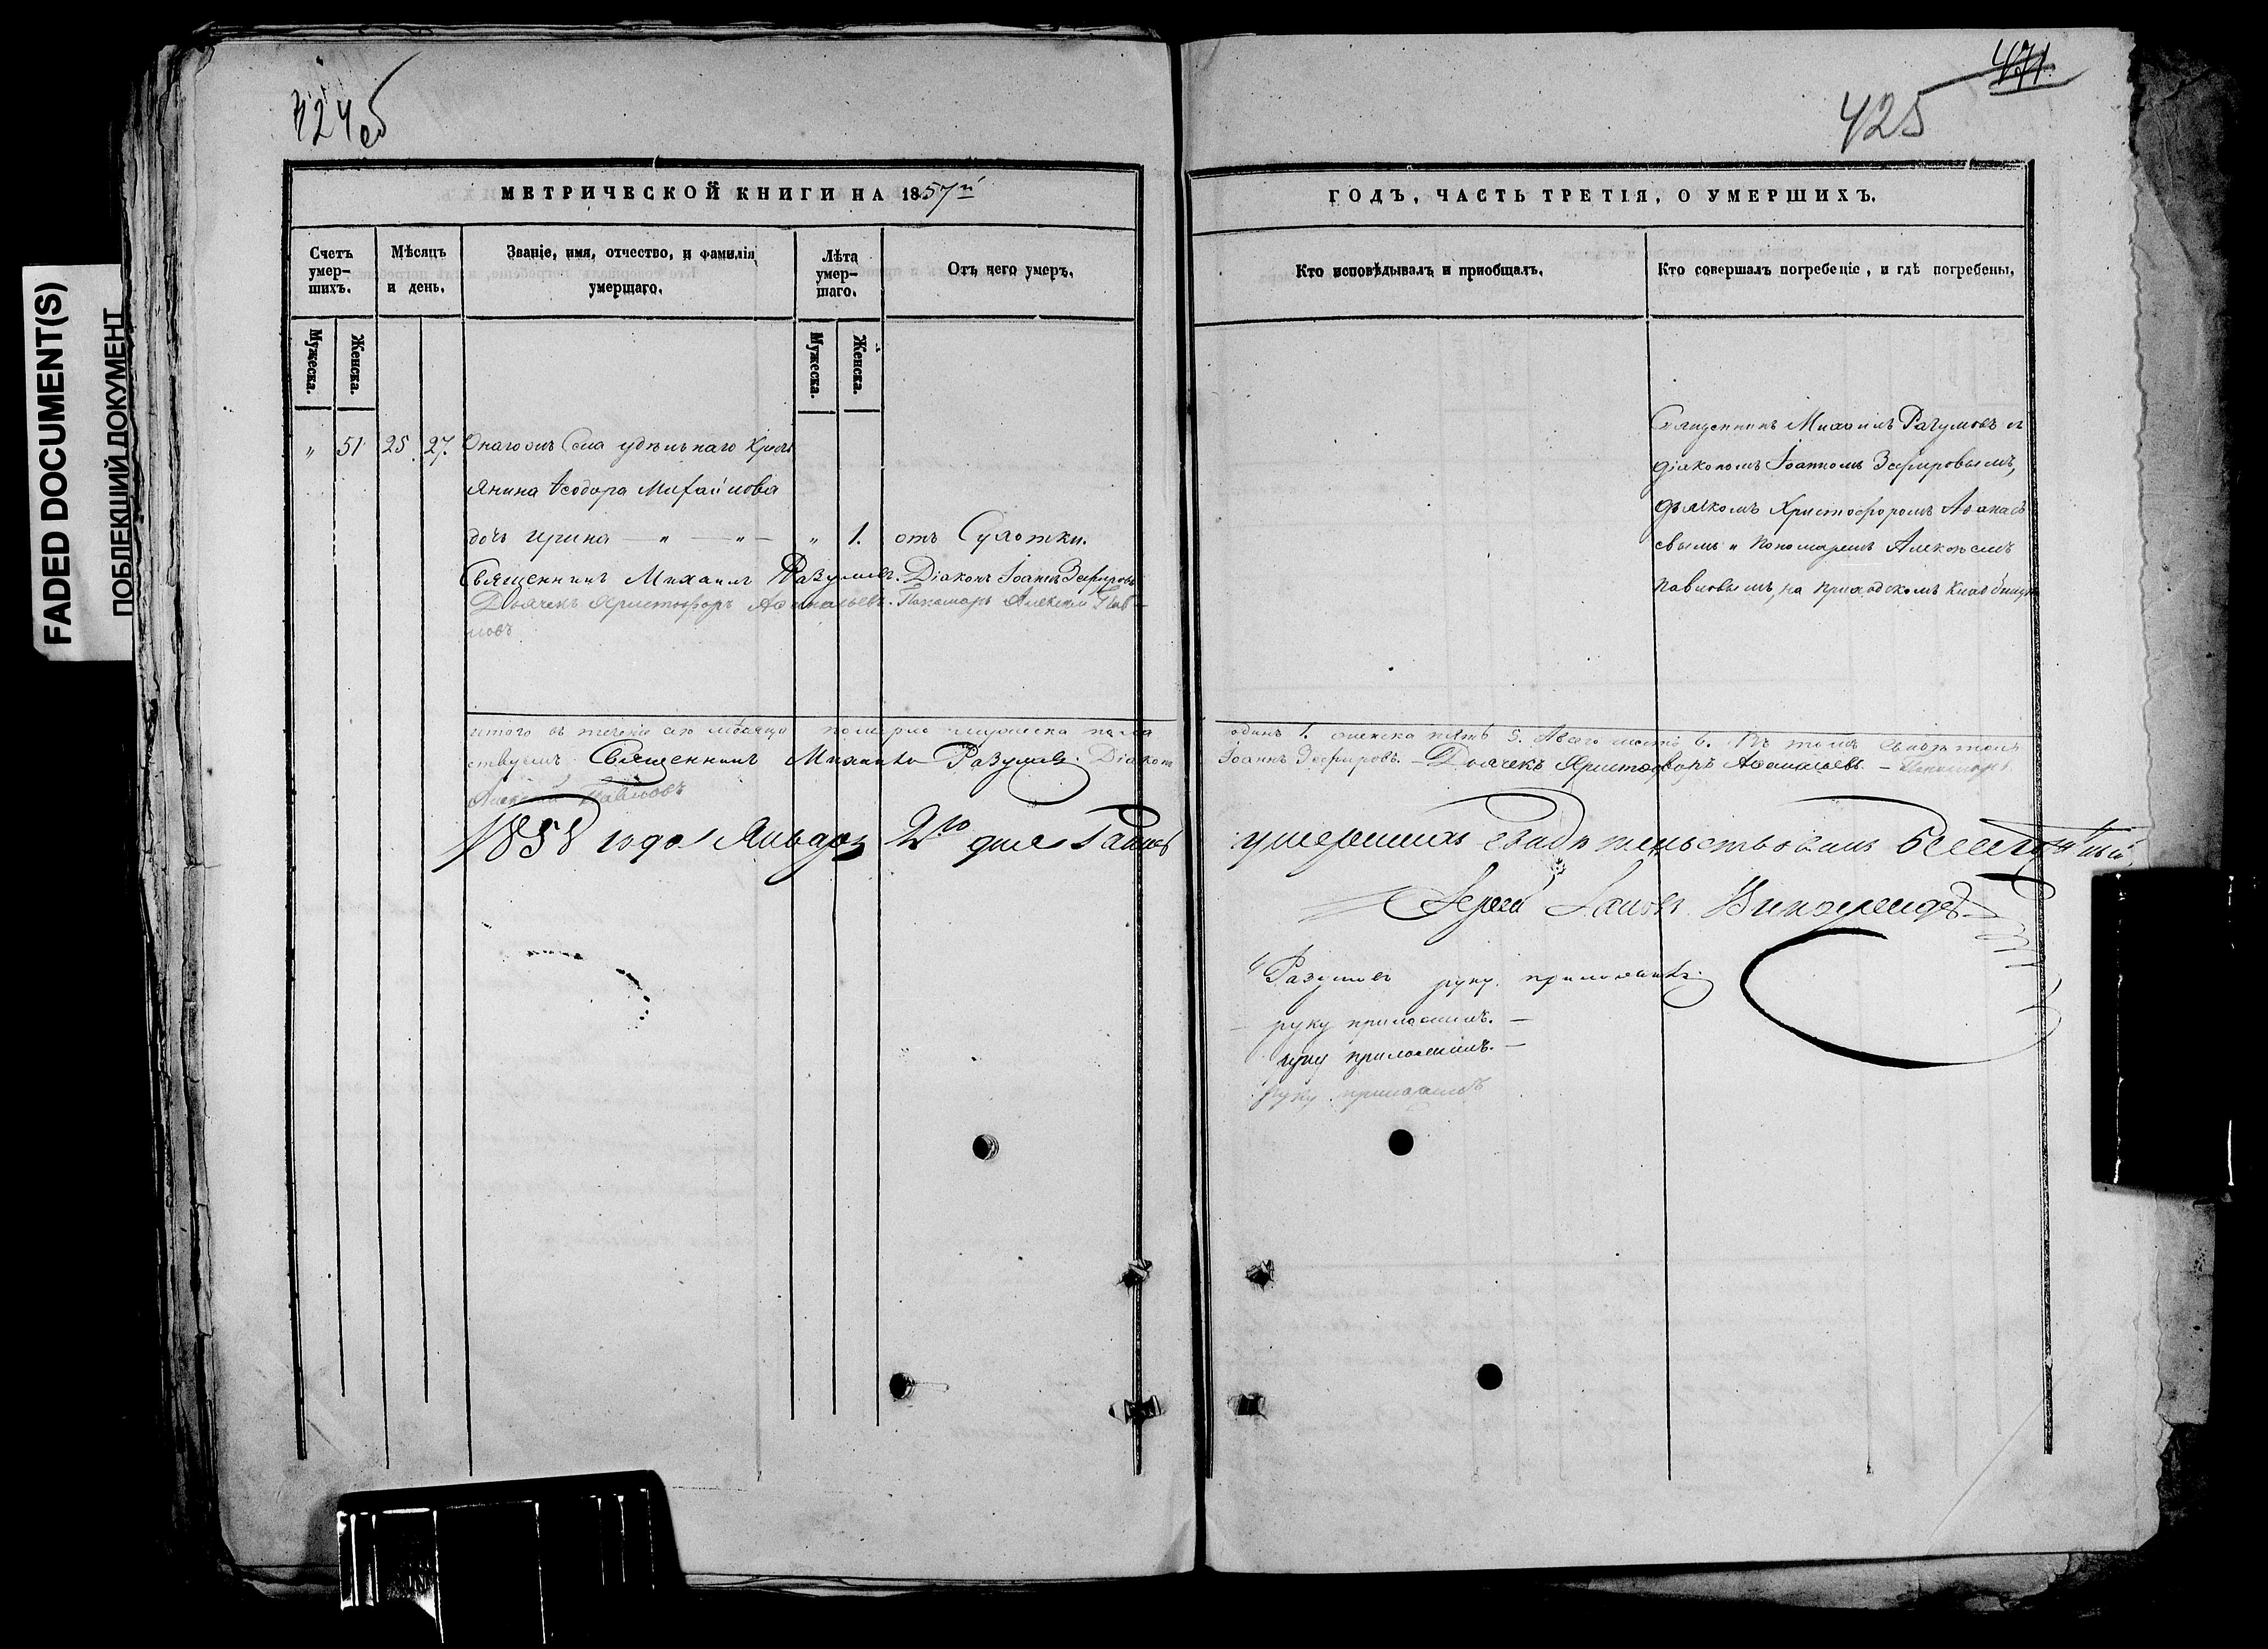 424об
471.
425
FADED DOCUMENT(S)
ПОБЛЕКШИЙ ДОКУМЕНТ
МЕТРИЧЕСКОЙ КНИГИ НА 1857й
Счетъ умер-шихъ.
Мѣсяцъ и день.
Званіе, имя, отчество, и фамилія умершаго.
Лѣта умер-шаго.
Отъ чего умеръ.
Мужеска.
Женска.
Мужеска.
Женска.
„ 51 25. 27. Онагожъ Села удѣльнаго Крестъ
янина Ѳеодора Михайлова
дочь Ирина — „ — „ — „ 1. отъ Сухотки.
Священникъ Михаилъ Разумовъ. Діаконъ Іоаннъ Зефировъ
Дьячекъ Христофоръ Аѳанасьевъ. Пономарь Алексѣй Пав-
ловъ
итого въ теченіе сего мѣсяца померло мужеска пола
ствуемъ Священникъ Михаилъ Разумовъ. Діаконъ
Алексѣй Павловъ
1858 года Января 2го дня
ГОДЪ, ЧАСТЬ ТРЕТІЯ, О УМЕРШИХЪ.
Кто исповѣдывалъ и пріобщалъ.
Кто совершалъ погребеніе, и гдѣ погребены.
Священникъ Михаилъ Разумовъ съ
діакономъ Іоанномъ Зефировымъ,
дьячкомъ Христофоромъ Аѳанась
евымъ и Пономаремъ Алексѣемъ
Павловымъ, на приходскомъ кладбищѣ
одинъ 1. женска пять 5. Обоего шесть 6. Въ томъ свидѣтель
Іоаннъ Зефировъ. — Дьячекъ Христофоръ Аѳанасьевъ. — Пономарь
умершихъ свидѣтельствовалъ Благочинный
Іерей Іаковъ
Разумовъ руку приложилъ.
— руку приложилъ. —
руку приложилъ. —
руку приложилъ